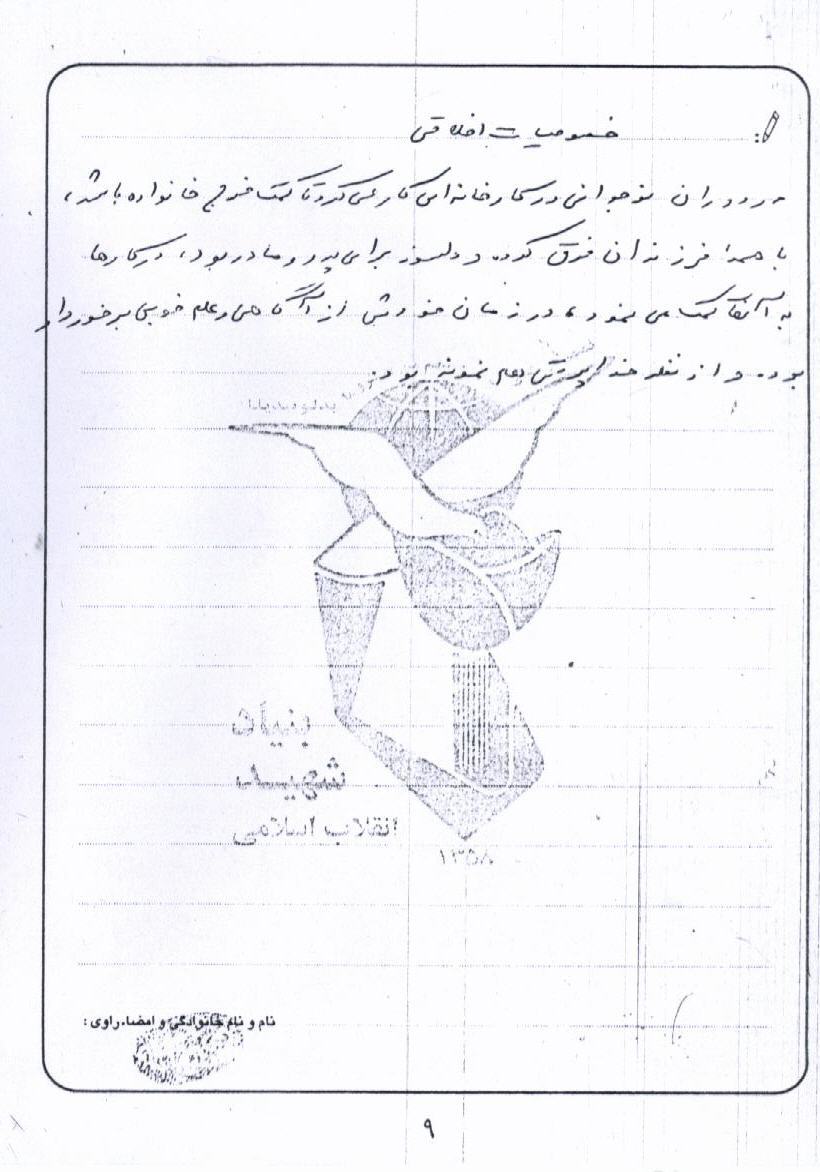 خصوصیات اخلاقی
در دوران نوجوانی در کارخانه‌ای کار می‌کرد تا کمک خرج خانواده باشد،
با همه فرزندان فرق کرده و دلسوز برای پدر و مادر بود، در کارها
به آنها کمک می نمود، در زمان خودش از آگاهی و علم خوبی برخوردار
بود و از نظر خداپرستی هم نمونه بود.
بنیاد
شهید
انقلاب اسلامی
۱۳۵۸
نام و نام خانوادگی و امضاء راوی:
۹